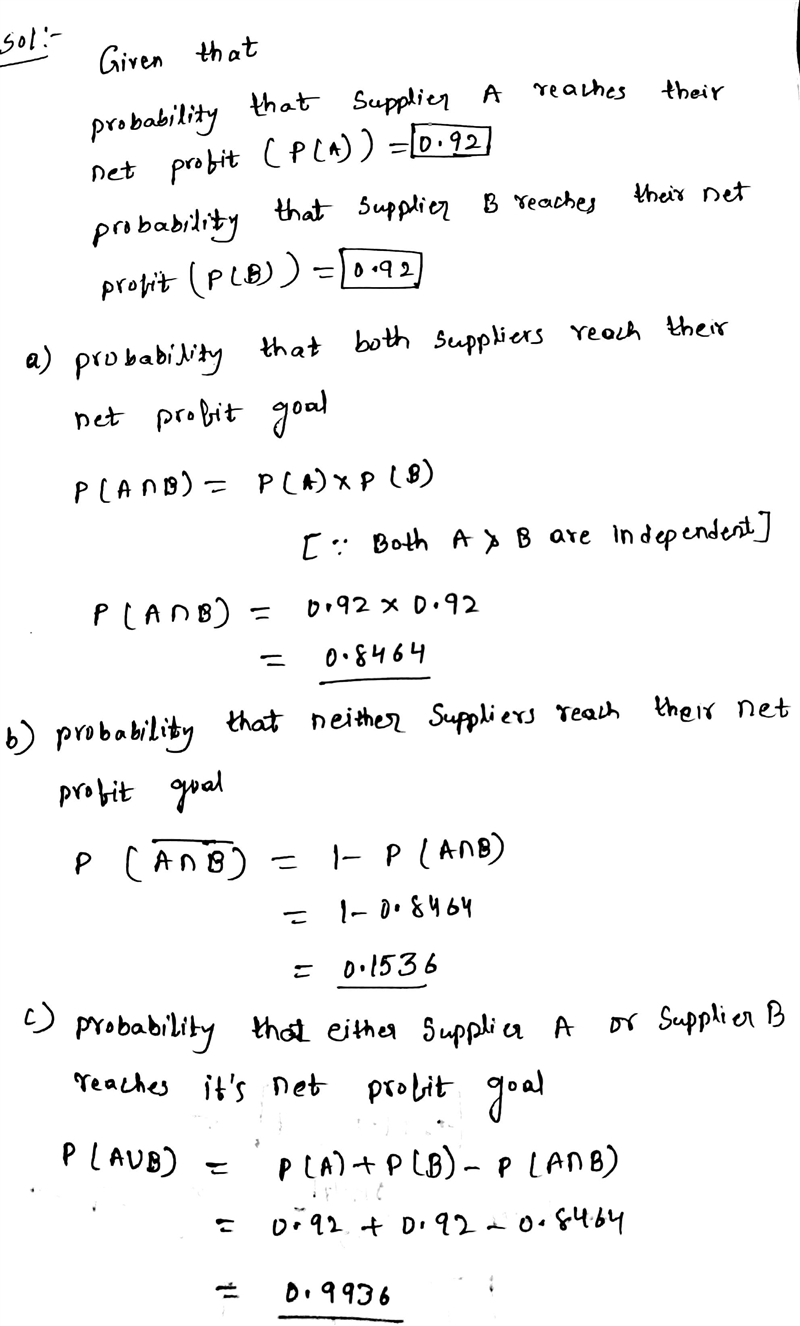 Sol:-
Given that
probability that Supplier A reaches their
net profit (P(A)) = 0.92
probability that Supplier B reaches their net
profit (P(B)) = 0.92
a) probability that both Suppliers reach their
net profit goal
P(A∩B) = P(A) × P(B)
[∵ Both A & B are independent]
P(A∩B) = 0.92 × 0.92
= 0.8464
b) probability that neither Suppliers reach their net
profit goal
P (A̅∩̅B̅) = 1- P(A∩B)
= 1- 0.8464
= 0.1536
c) probability that either Supplier A or Supplier B
reaches it's net profit goal
P(A∪B) = P(A) + P(B) - P(A∩B)
= 0.92 + 0.92 - 0.8464
= 0.9936